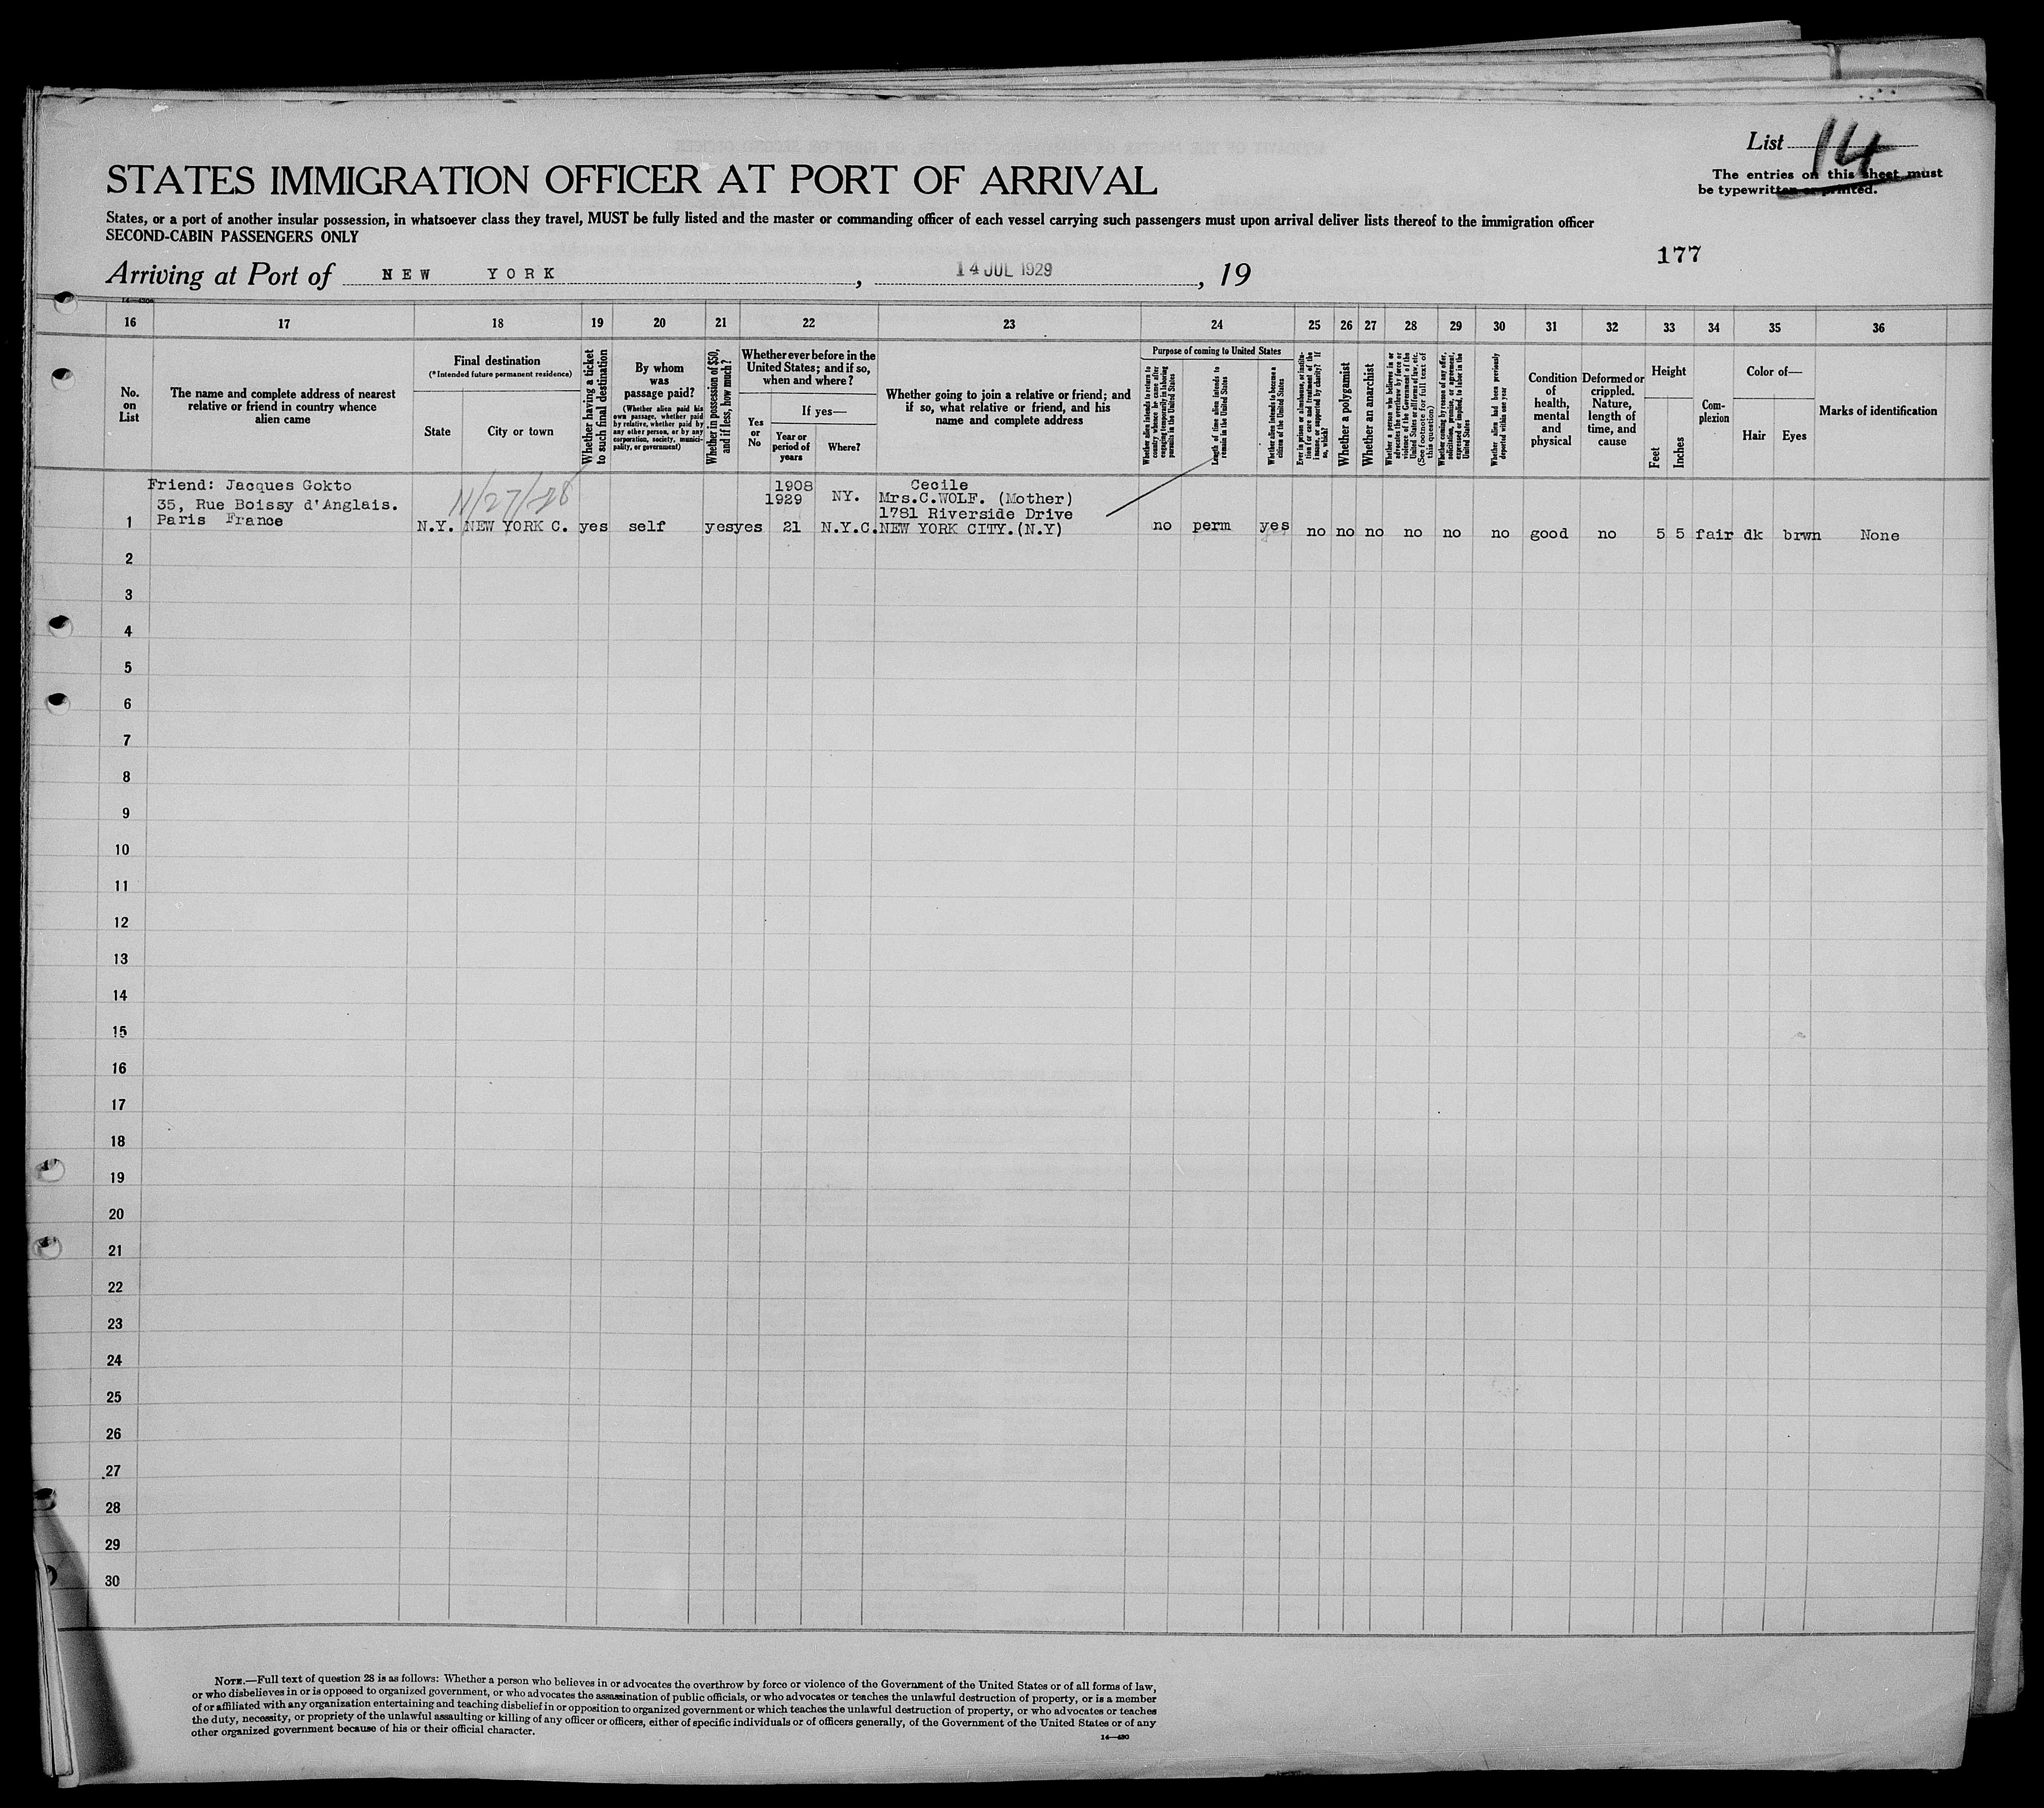 List 14
The entries on this sheet must
be typewritten or printed.
STATES IMMIGRATION OFFICER AT PORT OF ARRIVAL
States, or a port of another insular possession, in whatsoever class they travel, MUST be fully listed and the master or commanding officer of each vessel carrying such passengers must upon arrival deliver lists thereof to the immigration officer
SECOND-CABIN PASSENGERS ONLY
177
Arriving at Port of NEW YORK, 14 JUL 1929, 19
16 17 18 19 20 21 22 23 24 25 26 27 28 29 30 31 32 33 34 35 36
No. on List
The name and complete address of nearest
relative or friend in country whence
alien came
Final destination
(*Intended future permanent residence)
State
City or town
Whether having a ticket
to such final destination
By whom
was
passage paid?
(Whether alien paid his
own passage, whether paid
by relative, whether paid by
any other person, or by any
corporation, society, munici-
pality, or government)
Whether in possession of $50,
and if less, how much?
Whether ever before in the
United States; and if so,
when and where?
Yes
or
No
If yes—
Year or
period of
years
Where?
Whether going to join a relative or friend; and
if so, what relative or friend, and his
name and complete address
Purpose of coming to United States
Whether alien intends to return to
country whence he came after
engaging temporarily in laboring
pursuits in the United States
Length of time alien intends to
remain in the United States
Whether alien intends to become a
citizen of the United States
Ever in prison or almshouse, or institu-
tion for care and treatment of the
insane, or supported by charity? If
so, which?
Whether a polygamist
Whether an anarchist
Whether a person who believes in or
advocates the overthrow by force or
violence of the Government of the
United States or all forms of law, etc.
(See footnote for full text of
this question)
Whether coming by reason of any offer,
solicitation, promise, or agreement,
expressed or implied, to labor in the
United States
Whether alien had been previously
deported within one year
Condition
of
health,
mental
and
physical
Deformed or
crippled.
Nature,
length of
time, and
cause
Height
Feet
Inches
Com-
plexion
Color of—
Hair
Eyes
Marks of identification
11/27/28
Friend: Jacques Gokto 1908 Cecile
35, Rue Boissy d'Anglais. 1929 NY. Mrs.C.WOLF. (Mother)
Paris France 1781 Riverside Drive
1 N.Y. NEW YORK C. yes self yes yes 21 N.Y.C. NEW YORK CITY.(N.Y) no perm yes no no no no no no good no 5 5 fair dk brwn None
2
3
4
5
6
7
8
9
10
11
12
13
14
15
16
17
18
19
20
21
22
23
24
25
26
27
28
29
30
NOTE.—Full text of question 28 is as follows: Whether a person who believes in or advocates the overthrow by force or violence of the Government of the United States or of all forms of law,
or who disbelieves in or is opposed to organized government, or who advocates the assassination of public officials, or who advocates or teaches the unlawful destruction of property, or is a member
of or affiliated with any organization entertaining and teaching disbelief in or opposition to organized government or which teaches the unlawful destruction of property, or who advocates or teaches
the duty, necessity, or propriety of the unlawful assaulting or killing of any officer or officers, either of specific individuals or of officers generally, of the Government of the United States or of any
other organized government because of his or their official character.
14—430